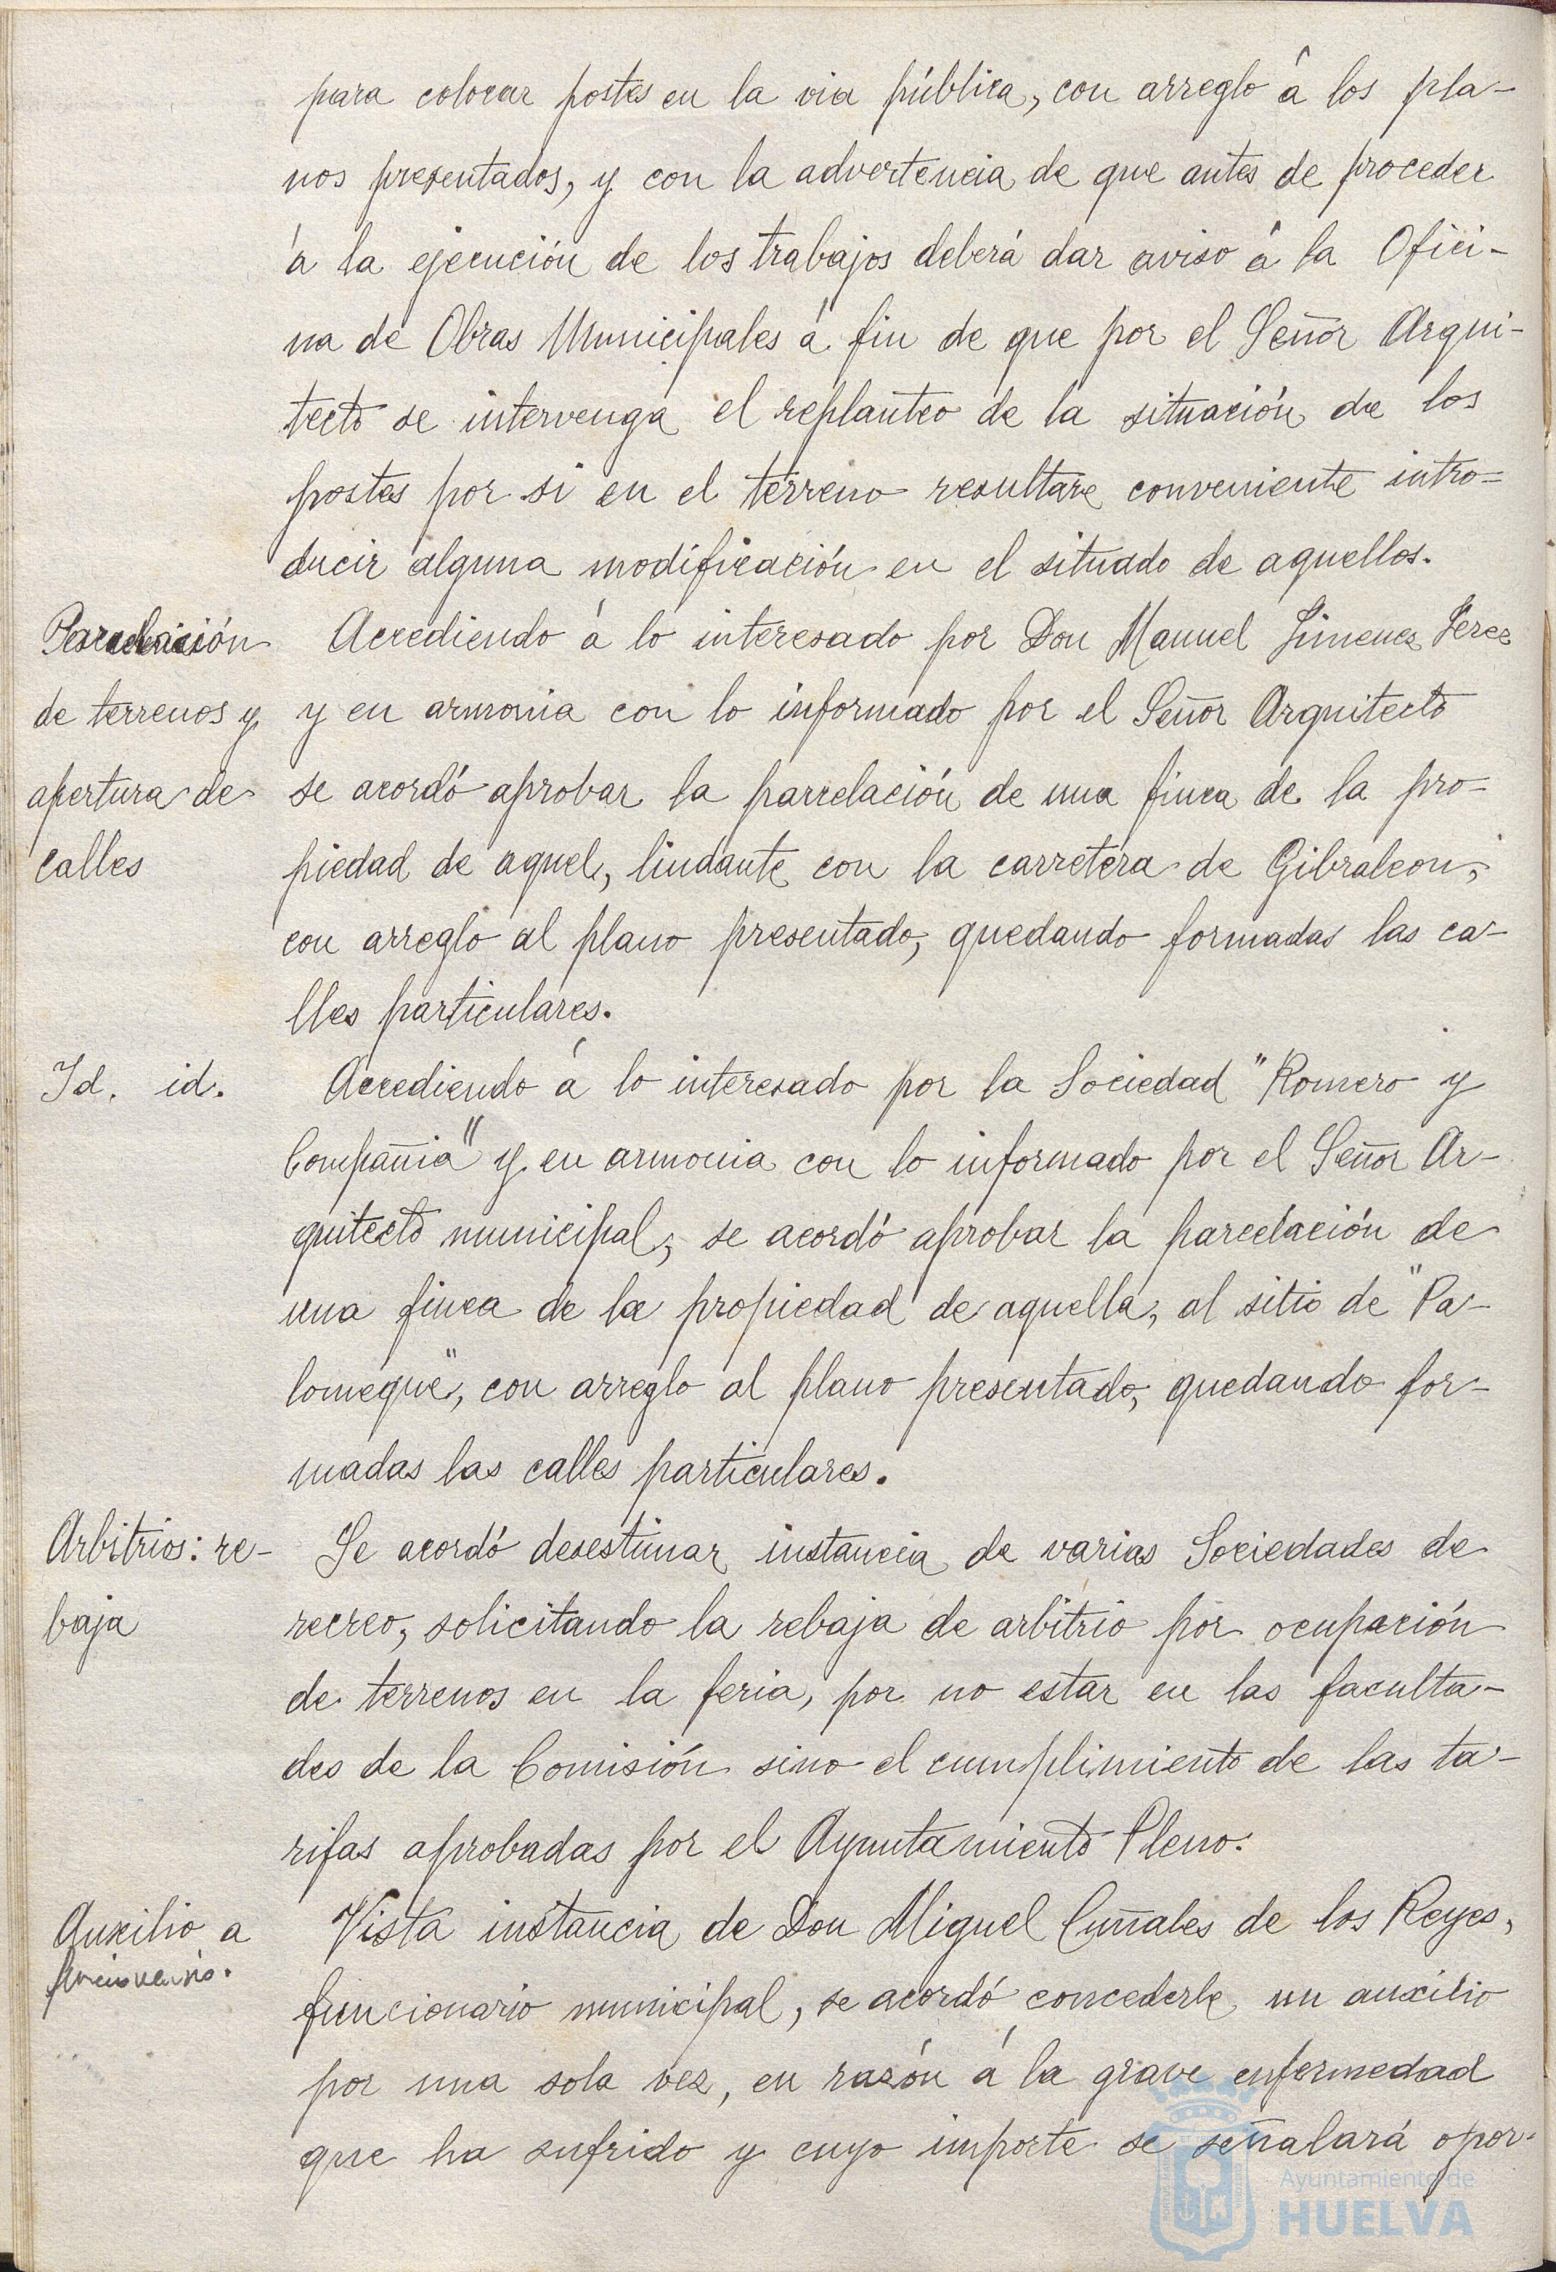 para colocar postes en la via pública, con arreglo á los pla-
nos presentados, y con la advertencia de que antes de proceder
á la ejecución de los trabajos deberá dar aviso á la Ofici-
na de Obras Municipales á fin de que por el Señor Arqui-
tecto se intervenga el replanteo de la situación de los
postes por si en el terreno resultare conveniente intro-
ducir alguna modificación en el situado de aquellos.
Parcelación
de terrenos y
apertura de
calles
Accediendo á lo interesado por Don Manuel Jimenez Perez
y en armonia con lo informado por el Señor Arquitecto
se acordó aprobar la parcelación de una finca de la pro-
piedad de aquel, lindante con la carretera de Gibraleon,
con arreglo al plano presentado, quedando formadas las ca-
lles particulares.
Id. id.
Accediendo á lo interesado por la Sociedad "Romero y
Compañia" y en armonia con lo informado por el Señor Ar-
quitecto municipal, se acordó aprobar la parcelación de
una finca de la propiedad de aquella, al sitio de "Pa-
lomeque", con arreglo al plano presentado, quedando for-
madas las calles particulares.
Arbitrios: re-
baja
Se acordó desestimar instancia de varias Sociedades de
recreo, solicitando la rebaja de arbitrio por ocupación
de terrenos en la feria, por no estar en las faculta-
des de la Comisión sino el cumplimiento de las ta-
rifas aprobadas por el Ayuntamiento Pleno.
Auxilio a
funcionario.
Vista instancia de Don Miguel Cuñales de los Reyes,
funcionario municipal, se acordó concederle un auxilio
por una sola vez, en razón á la grave enfermedad
que ha sufrido y cuyo importe se señalará opor-
Ayuntamiento de
HUELVA